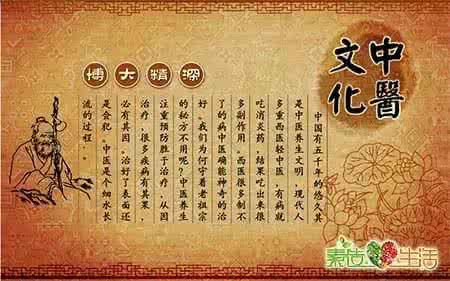 中醫
文化
博大精深
中国有五千年的悠久其
是中医养生文明，现代人
多重西医轻中医，有病就
吃消炎药，结果吃出来很
多副作用。西医很多制不
了的病中医确能神奇的治
好。我们为何守着老祖宗
的秘方不用呢？中医养生
注重预防胜于治疗，从因
治疗，很多疾病有其果，
必有其因。治好了表面还
是会犯。中医是个细水长
流的过程...
生活